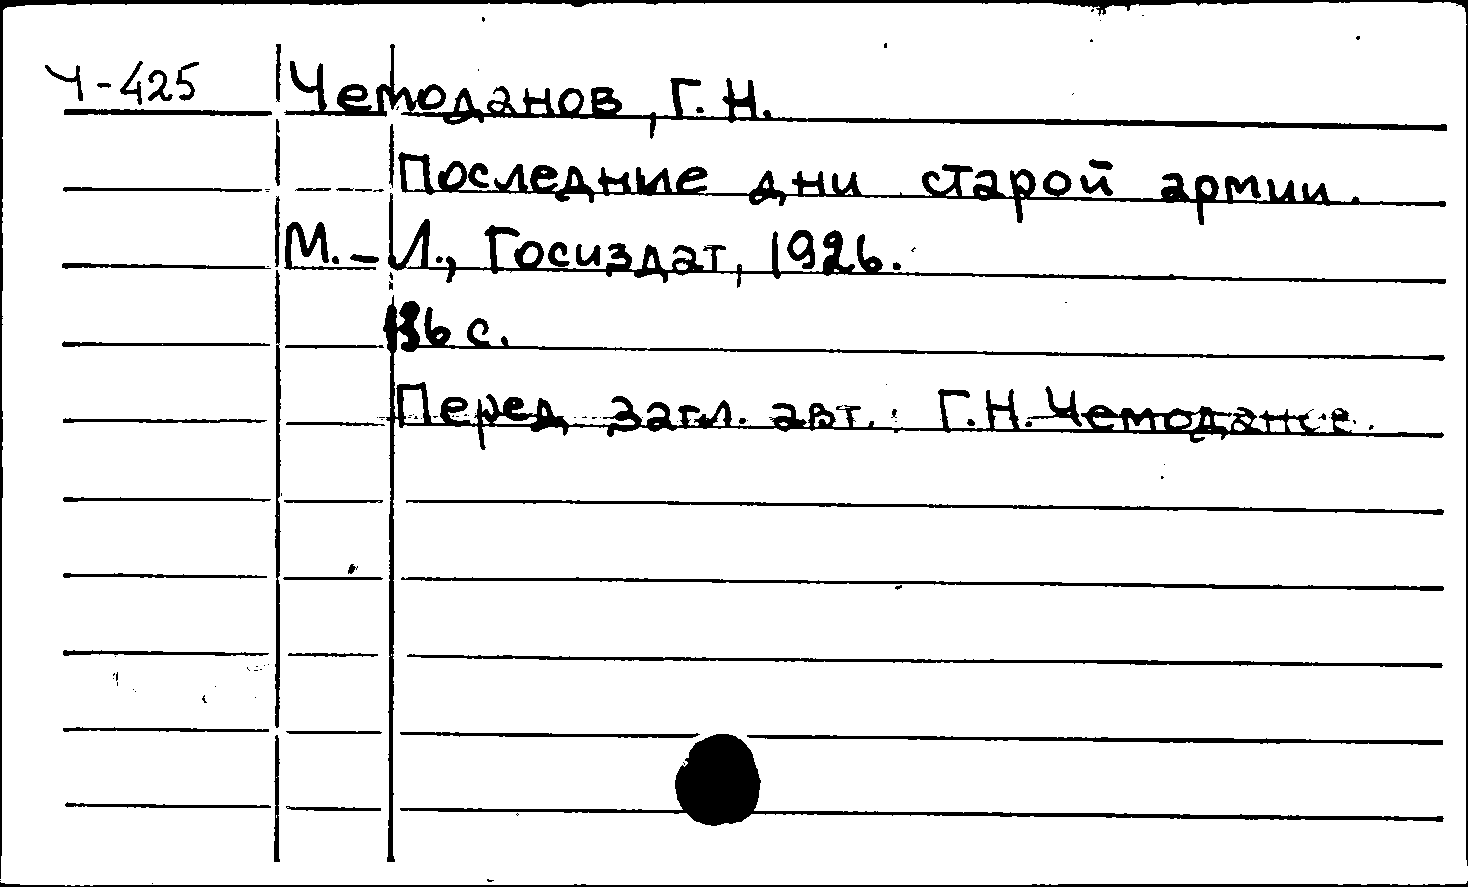 Ч-425
Чемоданов, Г. Н.
Последние дни старой армии.
М.-Л., Госиздат, 1926.
136 с.
Перед загл. авт.: Г.Н. Чемоданов.